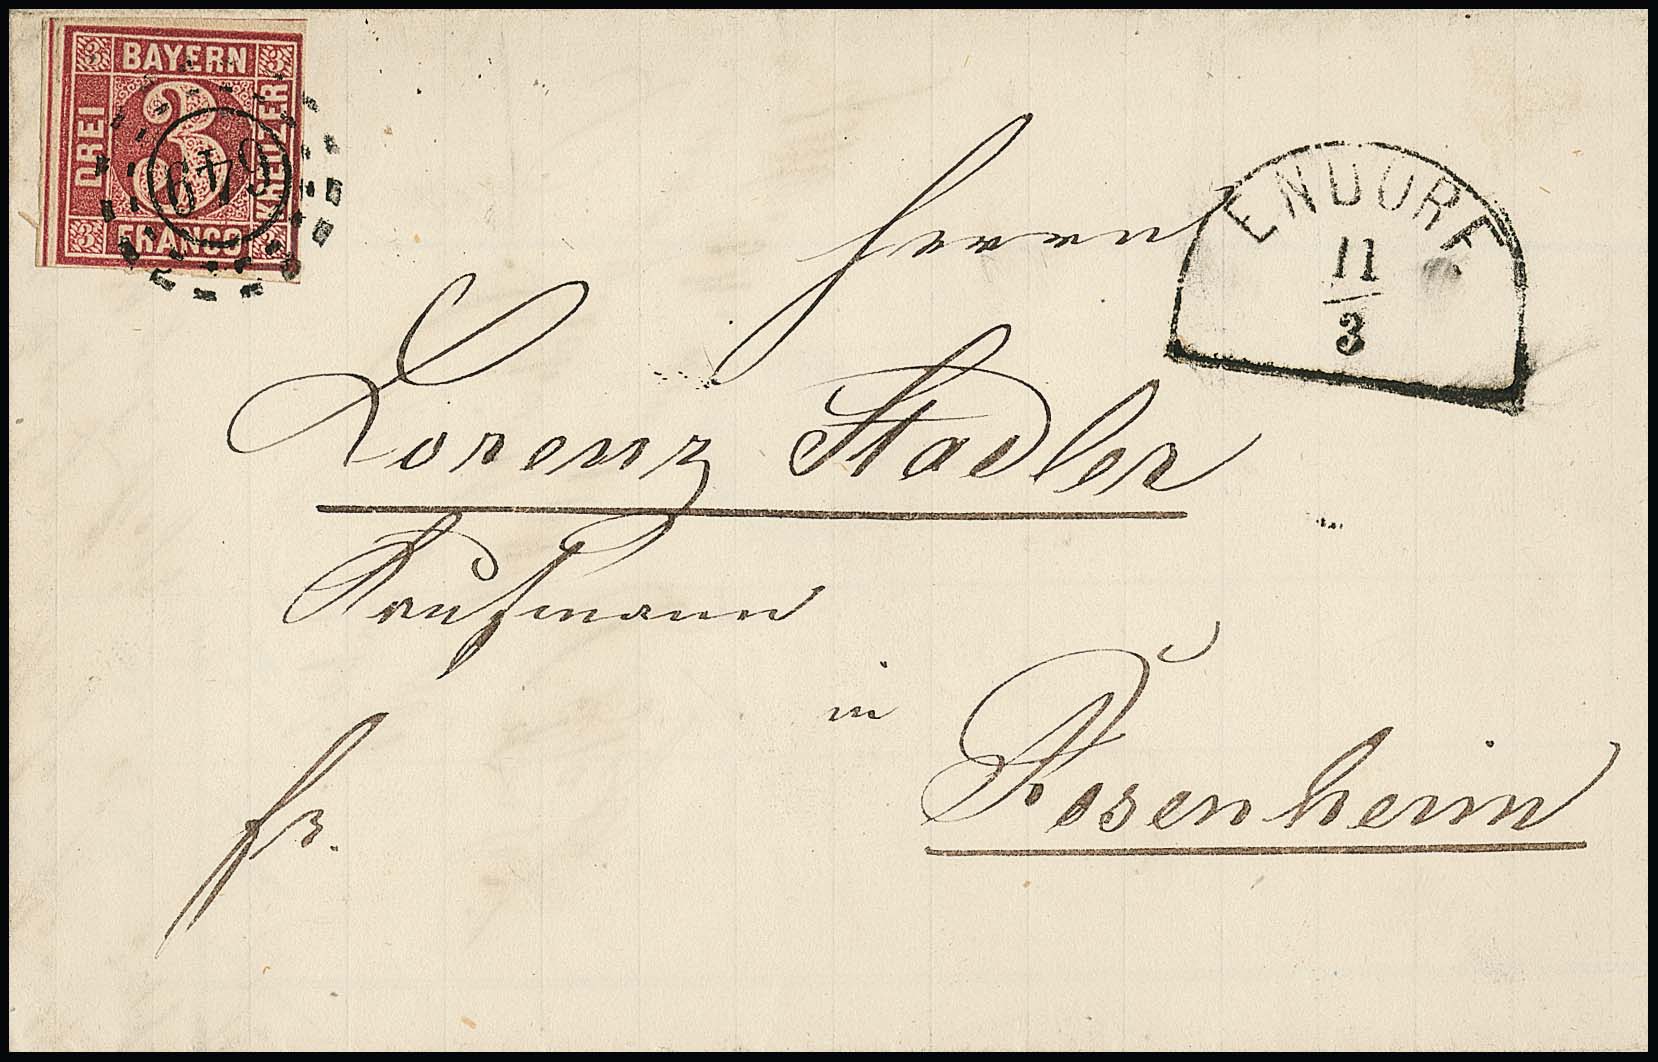 3 BAYERN 3
DREI
3
KREUZER
3 FRANCO 3
649
ENDORF
11
3
Herrn
Lorenz Stadler
Kaufmann
in
Rosenheim
fr.